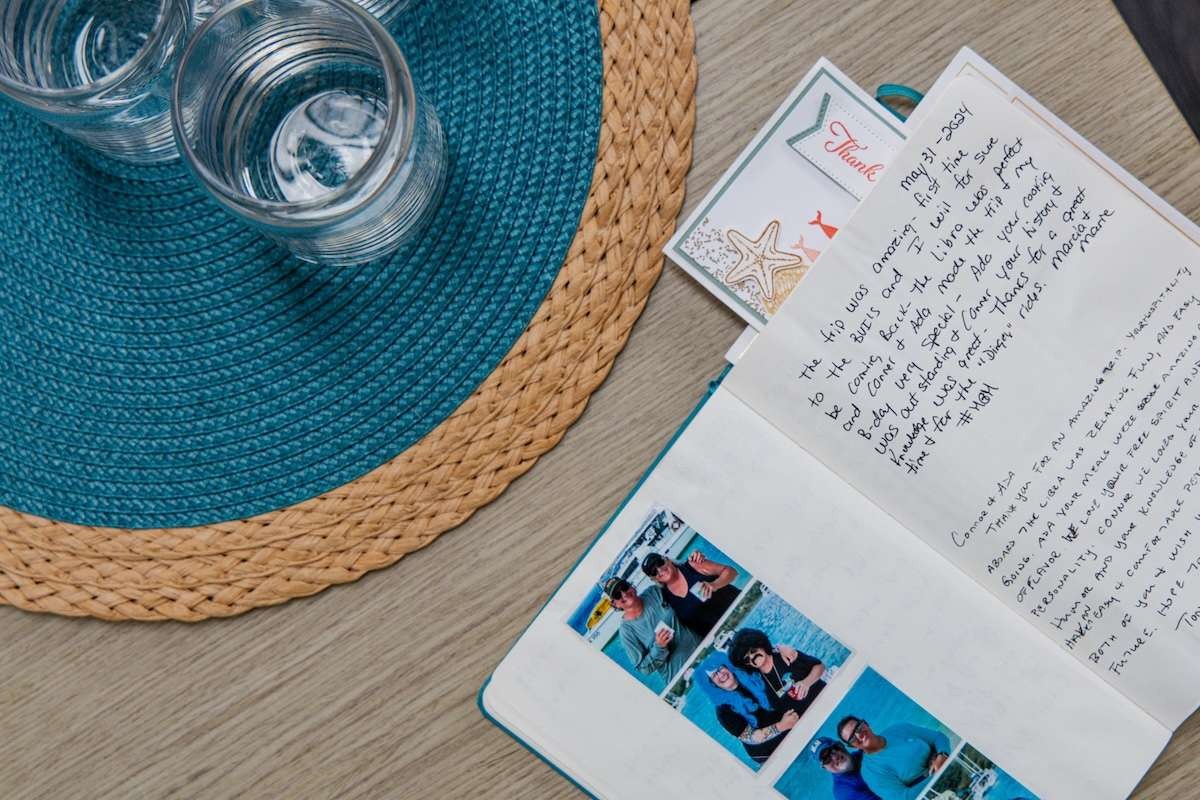 Thank
May 31 - 2024
The trip was amazing - first time
to the BVI'S and I will for sure
be coming Back - The Libra was perfect
and Conner & Ada made the trip & my
B-day very special - Ada your cooking
was outstanding & Conner your history &
knowledge was great - Thanks for a great
time & for the "Dingey" rides. Marcia &
#HBM Marie
Connor & Ada
Thank you for an amazing trip. Your hospitality
aboard the Libra was relaxing, fun, and easy
going. Ada your meals were amazing
of flavor. We love your free spirit and
personality. Connor we loved your
humor and your knowledge of
have easy & comfortable
both of you & wish
future. Hope to